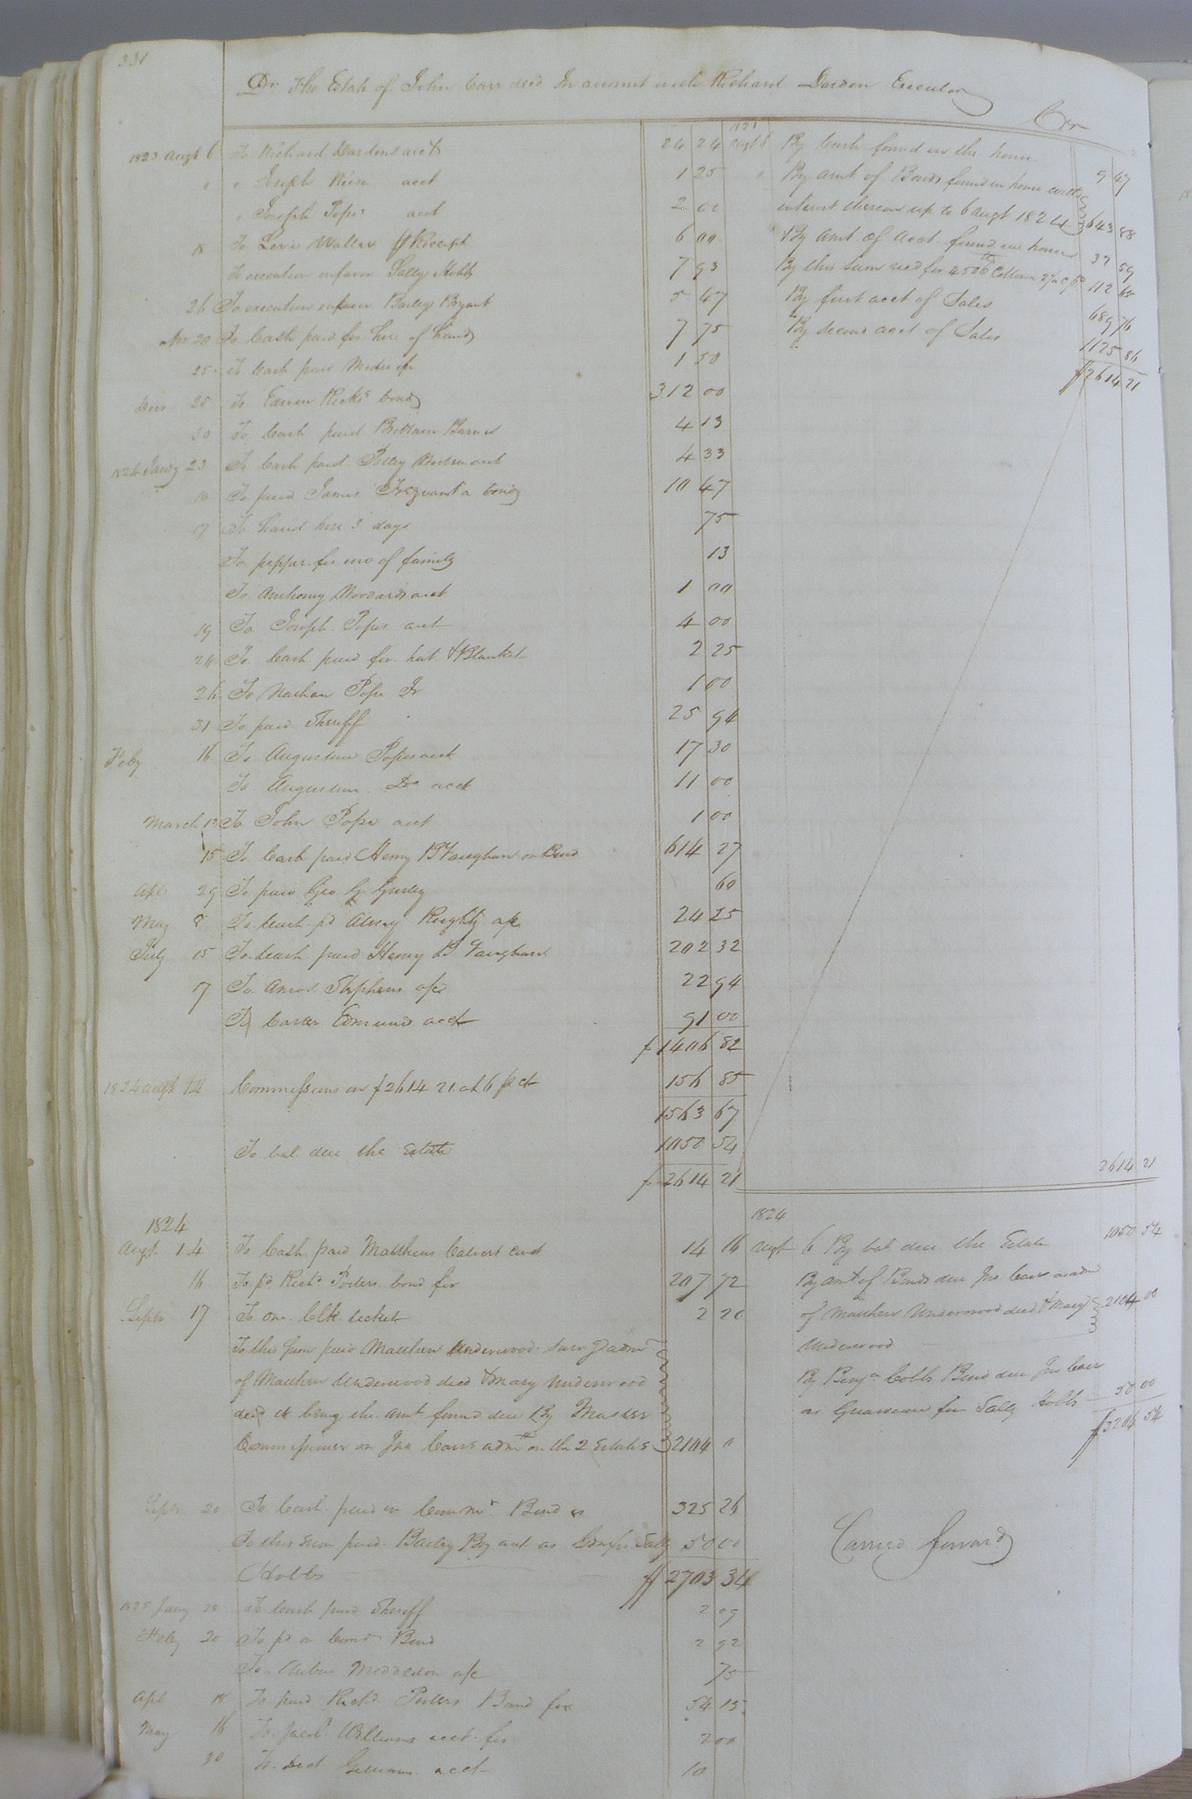 331
Dr The Estate of John Carr decd In account with Richard Darden Executor
Cr
1823 Augt 6 To Richard Dardens acct 24 24
" " Joseph acct 1 25
" Joseph Popes acct 2 00
18 To Levi Waller receipt 6 00
To execution in favor Sally Hobbs 7 93
26 To execution in favor Bailey Bryant 5 47
Nov 20 To Cash paid for hire of hand 7 75
25 To Cash paid 1 50
25 To Ricks bond 312 00
30 To Cash paid Barnes 4 13
1824 Jany 23 To Cash paid Polley acct 4 33
To paid James a bond 10 47
To hand hire 3 days 75
To pepper for use of family 13
To Anthony acct 1 00
19 To Joseph Popes acct 4 00
24 To Cash paid for hat & Blanket 2 25
26 To Nathan Pope Jr 1 00
31 To paid Sheriff 25 94
Feby 16 To Augustin Popes acct 17 30
To Augustin Do acct 11 00
March 13 To John Pope acct 1 00
15 To Cash paid Henry B Vaughan on Bond 614 27
Apl 29 To paid Geo G Gurley 60
May 8 To Cash pd a/c 24 25
July 15 To Cash paid Henry B Vaughan 202 32
7 To Amos Stephens a/c 22 94
To Carter Edmunds acct 91 00
$1406 82
1824 Augt 14 Commissions on $2614 21 at 6 p ct 156 85
1563 67
To bal due the Estate 1050 54
$2614 21
1823
Augt 6 By Cash found in the house 9 47
" By amt of Bonds found in house with
interest thereon up to 6 augt 1824 643 88
By amt of acct found in house 37 59
By this sum recd for 4506 lb Cotton 112 65
By first acct of Sales 689 76
By second acct of Sales 1125 86
$2614 21
2614 21
1824
Augt 14 To Cash paid Matthew Calvert acct 14 16
16 To pd Richd Porters bond for 207 72
Septr 17 To one Clk ticket 2 20
To this sum paid Matthew Underwood adm
of Matthew Underwood decd & Mary Underwood
decd it being the amt found due by Master
Commissioner on Jno Carrs adm on the 2 Estates 2104 0
Septr 20 To Cash paid on Bond 325 26
To this sum paid Bailey Bryant as for Sally 50 00
Hobbs $2703 34
1825 Jany To Cash paid Sheriff 2 09
Feby 20 To pd a Bond 2 92
To a/c 75
Apl 18 To paid Richd Porters Bond for 54 15
May 16 To Jacob Williams acct for 2 00
30 To acct 10
1824
Augt 6 By bal due the Estate 1050 54
By amt of Bonds due Jno Carr as adm
of Matthew Underwood decd & Mary 2104 00
Underwood
By Benja Cobbs Bond due Jno Carr
as Guardian for Sally Hobbs 50 00
$3204 54
Carried forward